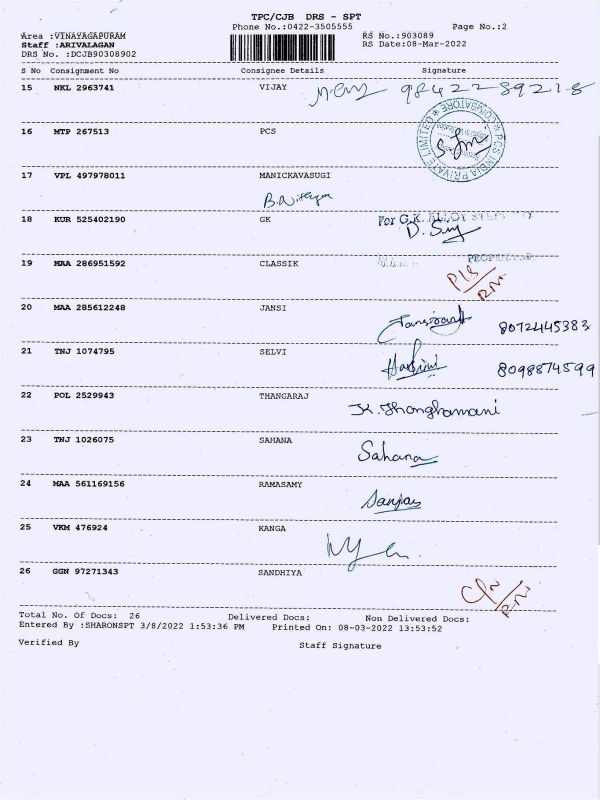 TPC/CJB DRS - SPT
Phone No.:0422-3505555 Page No.:2
Area :VINAYAGAPURAM RS No.:903089
Staff :ARIVALAGAN RS Date:08-Mar-2022
DRS No. :DCJB90308902
S No Consignment No Consignee Details Signature
15 NKL 2963741 VIJAY 98422 89218
16 MTP 267513 PCS
PCS INDIA PRIVATE LIMITED * COIMBATORE *
17 VPL 497978011 MANICKAVASUGI
18 KUR 525402190 GK For G.K. ALLOY
D.
19 MAA 286951592 CLASSIK PROPRIETOR
20 MAA 285612248 JANSI 8072445383
21 TNJ 1074795 SELVI 8098874599
22 POL 2529943 THANGARAJ K. Thanghamani
23 TNJ 1026075 SAHANA Sahana
24 MAA 561169156 RAMASAMY Sanjay
25 VKM 476924 KANGA
26 GGN 97271343 SANDHIYA
Total No. Of Docs: 26 Delivered Docs: Non Delivered Docs:
Entered By :SHARONSPT 3/8/2022 1:53:36 PM Printed On: 08-03-2022 13:53:52
Verified By Staff Signature